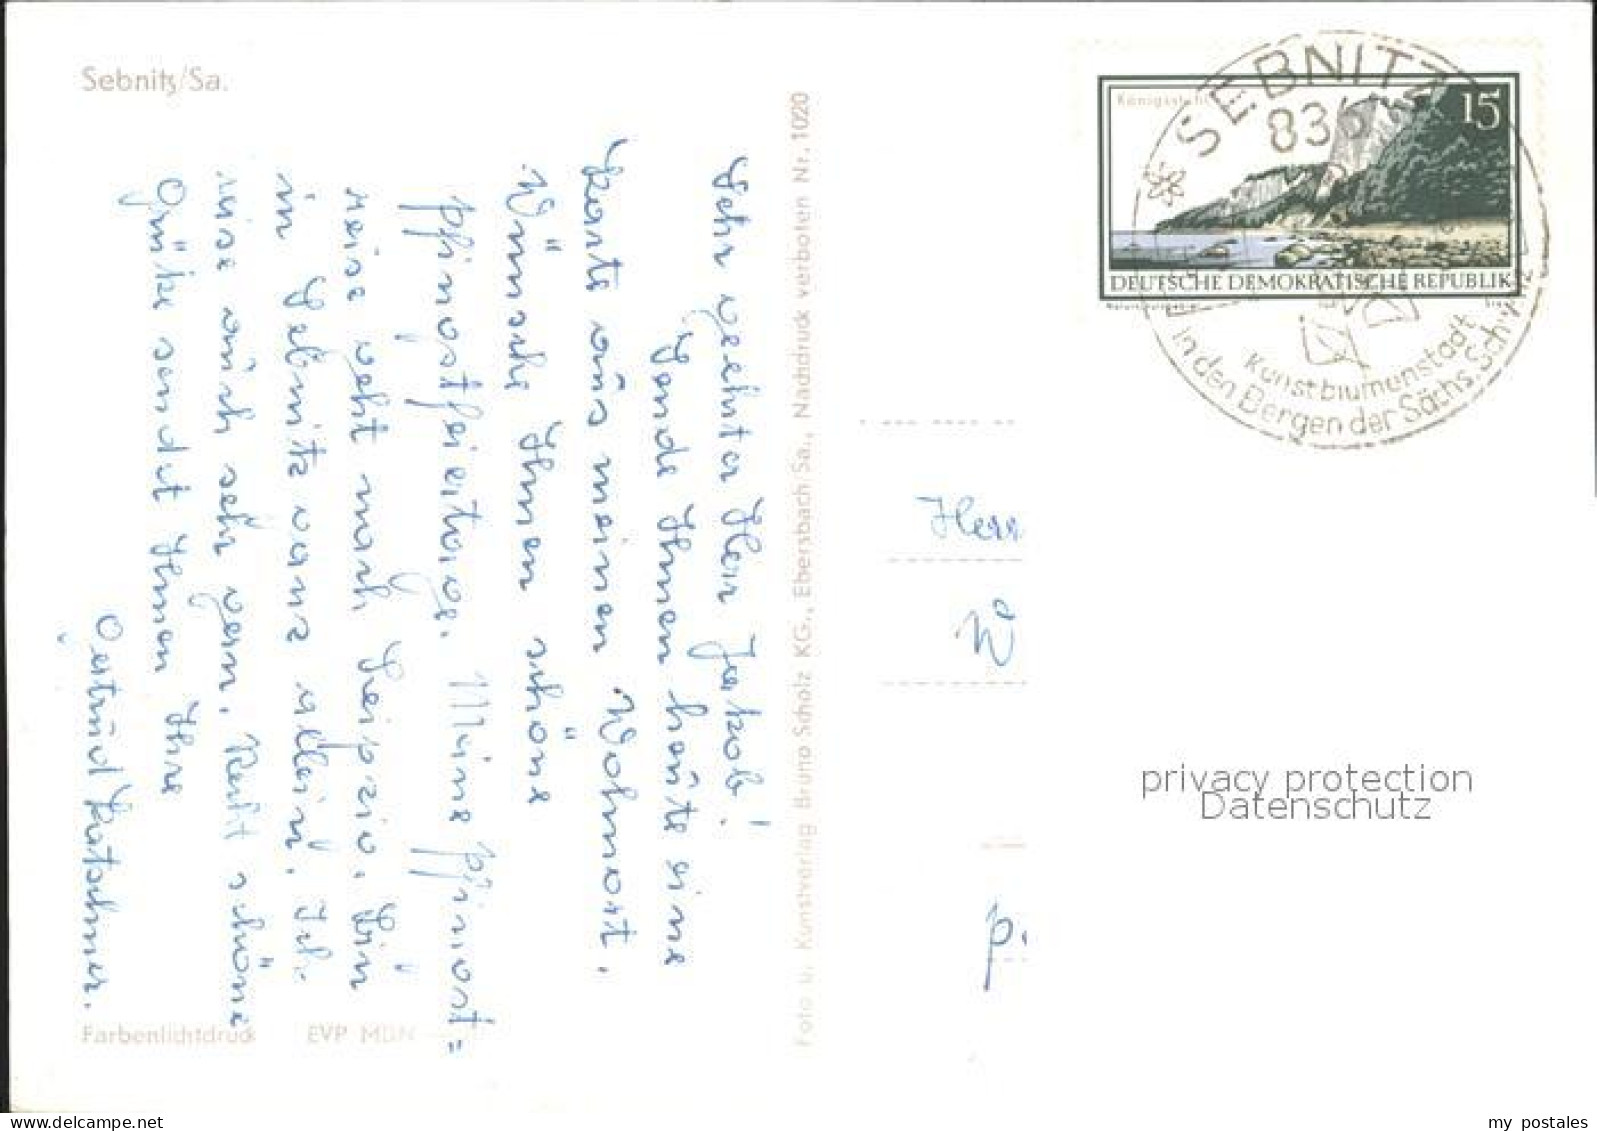 Sebnitz/Sa.
Sehr geehrter Herr Jakob!
Sende Ihnen heute eine
Karte aus meinen Wohnort.
Wünsche Ihnen schöne
Pfingstfeiertage. Meine Pfingst=
reise geht nach Leipzig. Bin
in Sebnitz ganz allein. Ich
reise auch sehr gern. Recht schöne
Grüße sendet Ihnen Ihre
Gertrud Kratschmer.
Farbenlichtdruck EVP MDN
Foto u. Kunstverlag Bruno Scholz KG., Ebersbach/Sa., Nachdruck verboten Nr. 1020
Königsstuhl
15
DEUTSCHE DEMOKRATISCHE REPUBLIK
SEBNITZ
836
Kunstblumenstadt
in den Bergen der Sächs. Schweiz
Herr
W
P.
privacy protection
Datenschutz
my postales